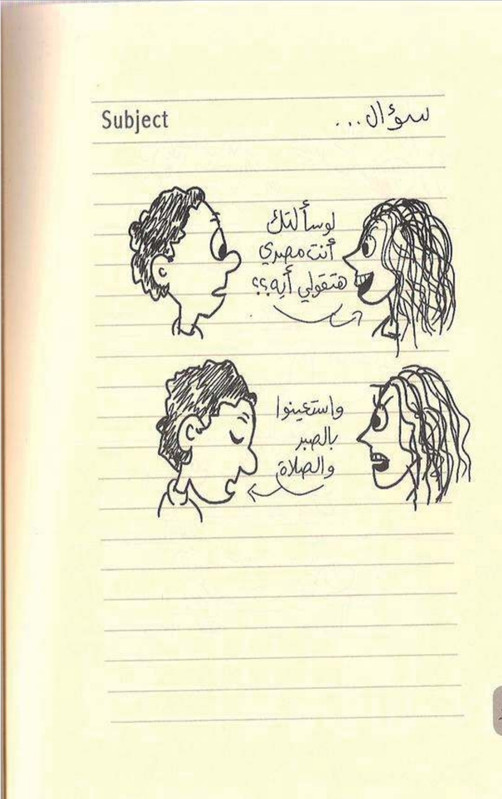 Subject
سؤال...
لو سألتك
أنت مصري
هتقولي أيه؟؟
واستعينوا
بالصبر
والصلاة